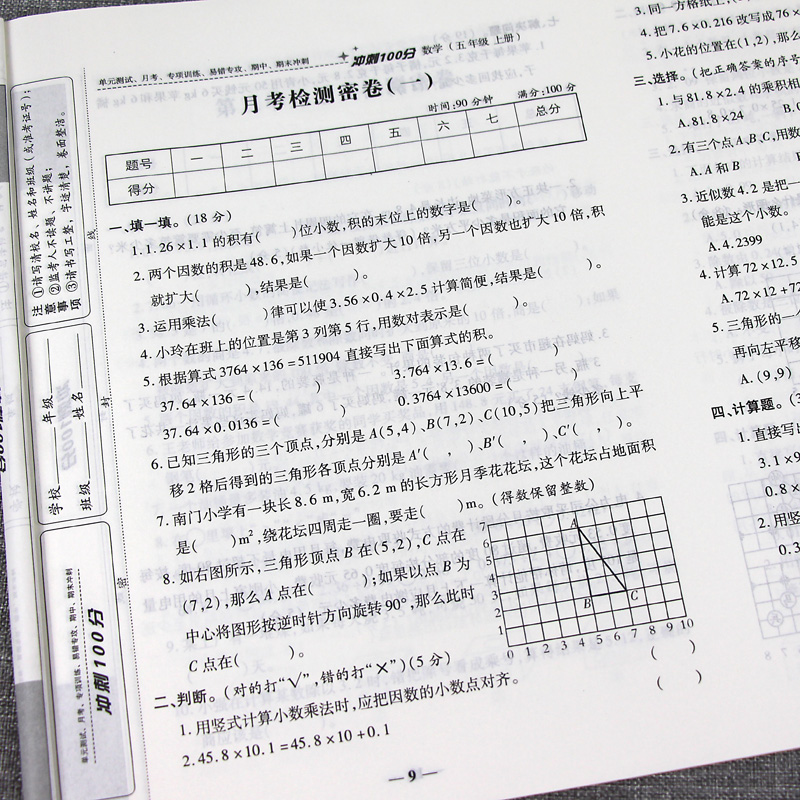 单元测试、月考、专项训练、易错专攻、期中、期末冲刺 冲刺100分 数学(五年级 上册)
月考检测密卷(一)
时间:90 分钟 满分:100 分
题号 一 二 三 四 五 六 七 总分
得分
一、填一填。(18 分)
1. 1.26×1.1 的积有( )位小数,积的末位上的数字是( )。
2. 两个因数的积是 48.6,如果一个因数扩大 10 倍,另一个因数也扩大 10 倍,积
就扩大( ),结果是( )。
3. 运用乘法( )律可以使 3.56×0.4×2.5 计算简便,结果是( )。
4. 小玲在班上的位置是第 3 列第 5 行,用数对表示是( )。
5. 根据算式 3764×136=511904 直接写出下面算式的积。
37.64×136=( ) 3.764×13.6=( )
37.64×0.0136=( ) 0.3764×13600=( )
6. 已知三角形的三个顶点,分别是 A(5,4)、B(7,2)、C(10,5) 把三角形向上平
移 2 格后得到的三角形各顶点分别是 A′( , )、B′( , )、C′( , )。
7. 南门小学有一块长 8.6 m,宽 6.2 m 的长方形月季花花坛,这个花坛占地面积
是( )m²,绕花坛四周走一圈,要走( )m。(得数保留整数)
8. 如右图所示,三角形顶点 B 在(5,2),C 点在
(7,2),那么 A 点在( );如果以点 B 为
中心将图形按逆时针方向旋转 90°,那么此时
C 点在( )。
7
6
5
4
3
2
1
0 1 2 3 4 5 6 7 8 9 10
A
B
C
二、判断。(对的打“√”,错的打“×”)(5 分)
1. 用竖式计算小数乘法时,应把因数的小数点对齐。 ( )
2. 45.8×10.1=45.8×10+0.1 ( )
— 9 —
注意事项
①请写清校名、姓名和班级(或准考证号);
②监考人不读题、不讲题;
③请书写工整,字迹清楚,卷面整洁。
学校 年级
班级 姓名
线
封
密
单元测试、月考、专项训练、易错专攻、期中、期末冲刺
冲刺100分
3. 同一方格纸上,
4. 把 7.6×0.216 改写成 76×
5. 小花的位置在(1,2),那么
三、选择。(把正确答案的序号
1. 与 81.8×2.4 的乘积相
A. 81.8×24
2. 有三个点 A、B、C,用数
A. A 和 B
3. 近似数 4.2 是把一
能是这个小数。
A. 4.2399
4. 计算 72×12.5
A. 72×12+72
5. 三角形的一
再向左平移
A. (9,9)
四、计算题。(3
1. 直接写出
3.1×9
0.8×
2. 用竖
0.3